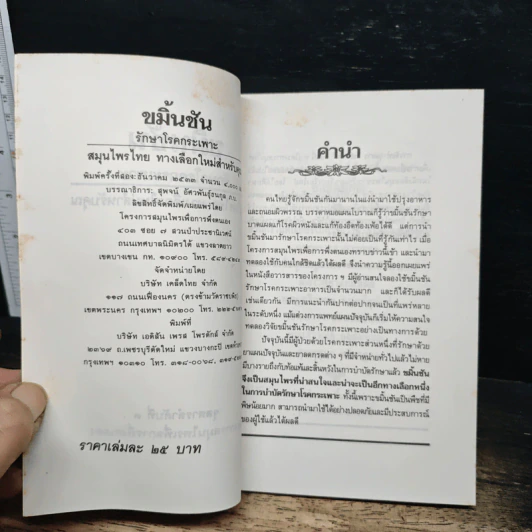 ขมิ้นชัน
รักษาโรคกระเพาะ
สมุนไพรไทย ทางเลือกใหม่สำหรับคุณ
พิมพ์ครั้งที่สอง: ธันวาคม ๒๕๓๓ จำนวน ๔,๐๐๐
บรรณาธิการ: สุพจน์ อัศวพันธุ์ธนกุล
ลิขสิทธิ์จัดพิมพ์/เผยแพร่โดย
โครงการสมุนไพรเพื่อการพึ่งตนเอง
๔๐๓ ซอย ๗ สวนป่าประชานิเวศน์
ถนนเทศบาลนิมิตรใต้ แขวงลาดยาว
เขตบางเขน กท. ๑๐๙๐๐ โทร.
จัดจำหน่ายโดย
บริษัท เคล็ดไทย จำกัด
๑๑๗ ถนนเฟื่องนคร (ตรงข้ามวัดราชบพิธ)
เขตพระนคร กรุงเทพฯ ๑๐๒๐๐ โทร.
พิมพ์ที่
บริษัท เอดิสัน เพรส โพรดักส์ จำกัด
๒๓๖๙ ถ.เพชรบุรีตัดใหม่ แขวงบางกะปิ
กรุงเทพฯ ๑๐๓๑๐ โทร.
ราคาเล่มละ ๒๕ บาท
คำนำ
คนไทยรู้จักขมิ้นชันกันมานานในแง่นำมาใช้ปรุงอาหาร
และถนอมผิวพรรณ บรรดาหมอแผนโบราณก็รู้ว่าขมิ้นชันรักษา
บาดแผลแก้โรคผิวหนังและแก้ท้องอืดท้องเฟ้อได้ดี แต่การนำ
ขมิ้นชันมารักษาโรคกระเพาะนั้นไม่ค่อยเป็นที่รู้กันเท่าไร เมื่อ
โครงการสมุนไพรเพื่อการพึ่งตนเองทราบข่าวนี้เข้า และนำมา
ทดลองใช้กับคนใกล้ชิดแล้วได้ผลดี จึงนำความรู้นี้ออกเผยแพร่
ในหนังสือวารสารของโครงการ ฯ มีผู้อ่านสนใจลองใช้ขมิ้นชัน
รักษาโรคกระเพาะอาหารเป็นจำนวนมาก และก็ได้รับผลดี
เช่นเดียวกัน มีการแนะนำกันปากต่อปากจนเป็นที่แพร่หลาย
ในระดับหนึ่ง แม้แต่วงการแพทย์แผนปัจจุบันก็เริ่มให้ความสนใจ
ทดลองวิจัยขมิ้นชันรักษาโรคกระเพาะอย่างเป็นทางการด้วย
ปัจจุบันนี้มีผู้ป่วยด้วยโรคกระเพาะส่วนหนึ่งที่รักษาด้วย
ยาแผนปัจจุบันและยาลดกรดต่าง ๆ ที่มีจำหน่ายทั่วไปแล้วไม่หาย
มีบางรายถึงกับท้อแท้และสิ้นหวังในการบำบัดรักษาแล้ว ขมิ้นชัน
จึงเป็นสมุนไพรที่น่าสนใจและน่าจะเป็นอีกทางเลือกหนึ่ง
ในการบำบัดรักษาโรคกระเพาะ ทั้งนี้เพราะขมิ้นชันเป็นพืชที่มี
พิษน้อยมาก สามารถนำมาใช้ได้อย่างปลอดภัยและมีประสบการณ์
ของผู้ใช้แล้วได้ผลดี